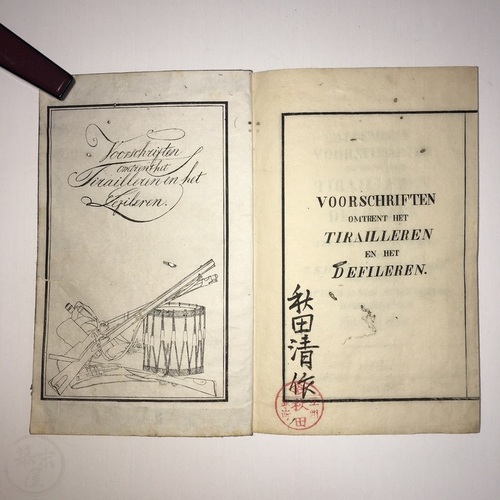 Voorschriften
omtrent het
Tirailleren en het
Defileren.
VOORSCHRIFTEN
OMTRENT HET
TIRAILLEREN
EN HET
DEFILEREN.
秋田清
秋田